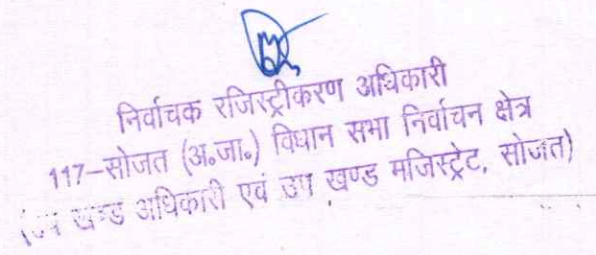 निर्वाचक रजिस्ट्रीकरण अधिकारी
117-सोजत (अ॰जा॰) विधान सभा निर्वाचन क्षेत्र
(उप खण्ड अधिकारी एवं उप खण्ड मजिस्ट्रेट, सोजत)